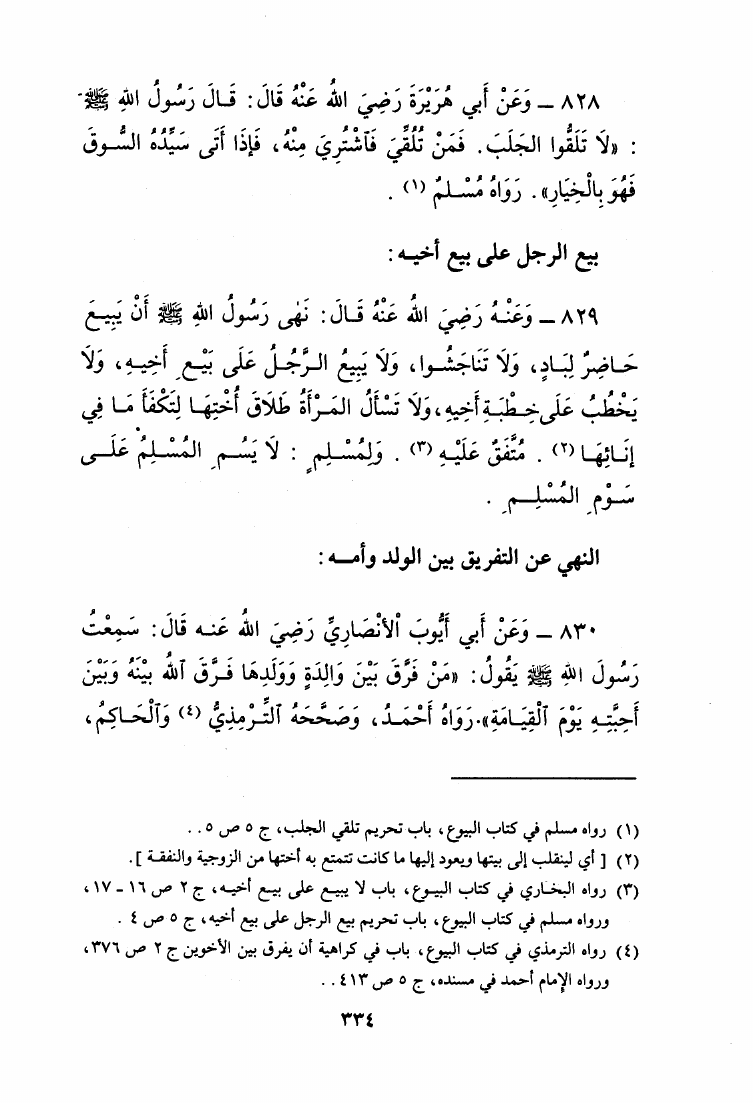 ٨٢٨ ــ وَعَنْ أَبي هُرَيْرَةَ رَضِيَ اللهُ عَنْهُ قَالَ: قَـالَ رَسُولُ اللهِ ﷺ
: «لَا تَلَقُّوا الجَلَبَ. فَمَنْ تُلُقِّيَ فَٱشْتُرِيَ مِنْهُ، فَإِذَا أَتَى سَيِّدُهُ السُّـوقَ
فَهُوَ بِالْخِيَارِ». رَوَاهُ مُسْـلِمٌ (١) .
بيع الرجل على بيع أخيـه :
٨٢٩ ــ وَعَنْـهُ رَضِيَ اللهُ عَنْهُ قَـالَ: نَهَى رَسُولُ اللهِ ﷺ أَنْ يَبِيـعَ
حَـاضِرٌ لِبَـادٍ، وَلَا تَنَاجَشُـوا، وَلَا يَبِيعُ الـرَّجُـلُ عَلَى بَيْـعِ أَخِيـهِ، وَلَا
يَخْطُبُ عَلَى خِـطْبَـةِ أَخِيهِ، وَلَا تَسْأَلُ المَـرْأَةُ طَلَاقَ أُخْتِهَـا لِتَكْفَأَ مَـا فِي
إِنَـائِهَـا (٢) . مُتَّفَقٌ عَلَيْـهِ (٣) . وَلِمُسْـلِمٍ : لَا يَسُـمِ المُسْـلِمُ عَلَـى
سَـوْمِ المُسْلِـمِ .
النهي عن التفريق بين الولد وأمـه :
٨٣٠ ــ وَعَنْ أَبي أَيُّوبَ ٱلأَنْصَارِيِّ رَضِيَ اللهُ عَنـه قَالَ: سَمِعْتُ
رَسُولَ اللهِ ﷺ يَقُولُ: «مَنْ فَرَّقَ بَيْنَ وَالِدَةٍ وَوَلَدِهَا فَـرَّقَ ٱللهُ بَيْنَهُ وَبَيْنَ
أَحِبَّتِـهِ يَوْمَ ٱلْقِيَـامَةِ». رَوَاهُ أَحْمَـدُ، وَصَحَّحَهُ ٱلتِّـرْمِذِيُّ (٤) وَٱلْحَاكِمُ،
(١) رواه مسلم في كتاب البيوع، باب تحريم تلقي الجلب، ج ٥ ص ٥ . .
(٢) [ أي لينقلب إلى بيتها ويعود إليها ما كانت تتمتع به أختها من الزوجية والنفقـة ].
(٣) رواه البخـاري في كتاب البيـوع، باب لا يبيـع على بيـع أخيـه، ج ٢ ص ١٦ - ١٧،
ورواه مسلم في كتاب البيوع، باب تحريم بيع الرجل على بيع أخيه، ج ٥ ص ٤ .
(٤) رواه الترمذي في كتاب البيوع، باب في كراهية أن يفرق بين الأخوين ج ٢ ص ٣٧٦،
ورواه الإمام أحمد في مسنده، ج ٥ ص ٤١٣ . .
٣٣٤